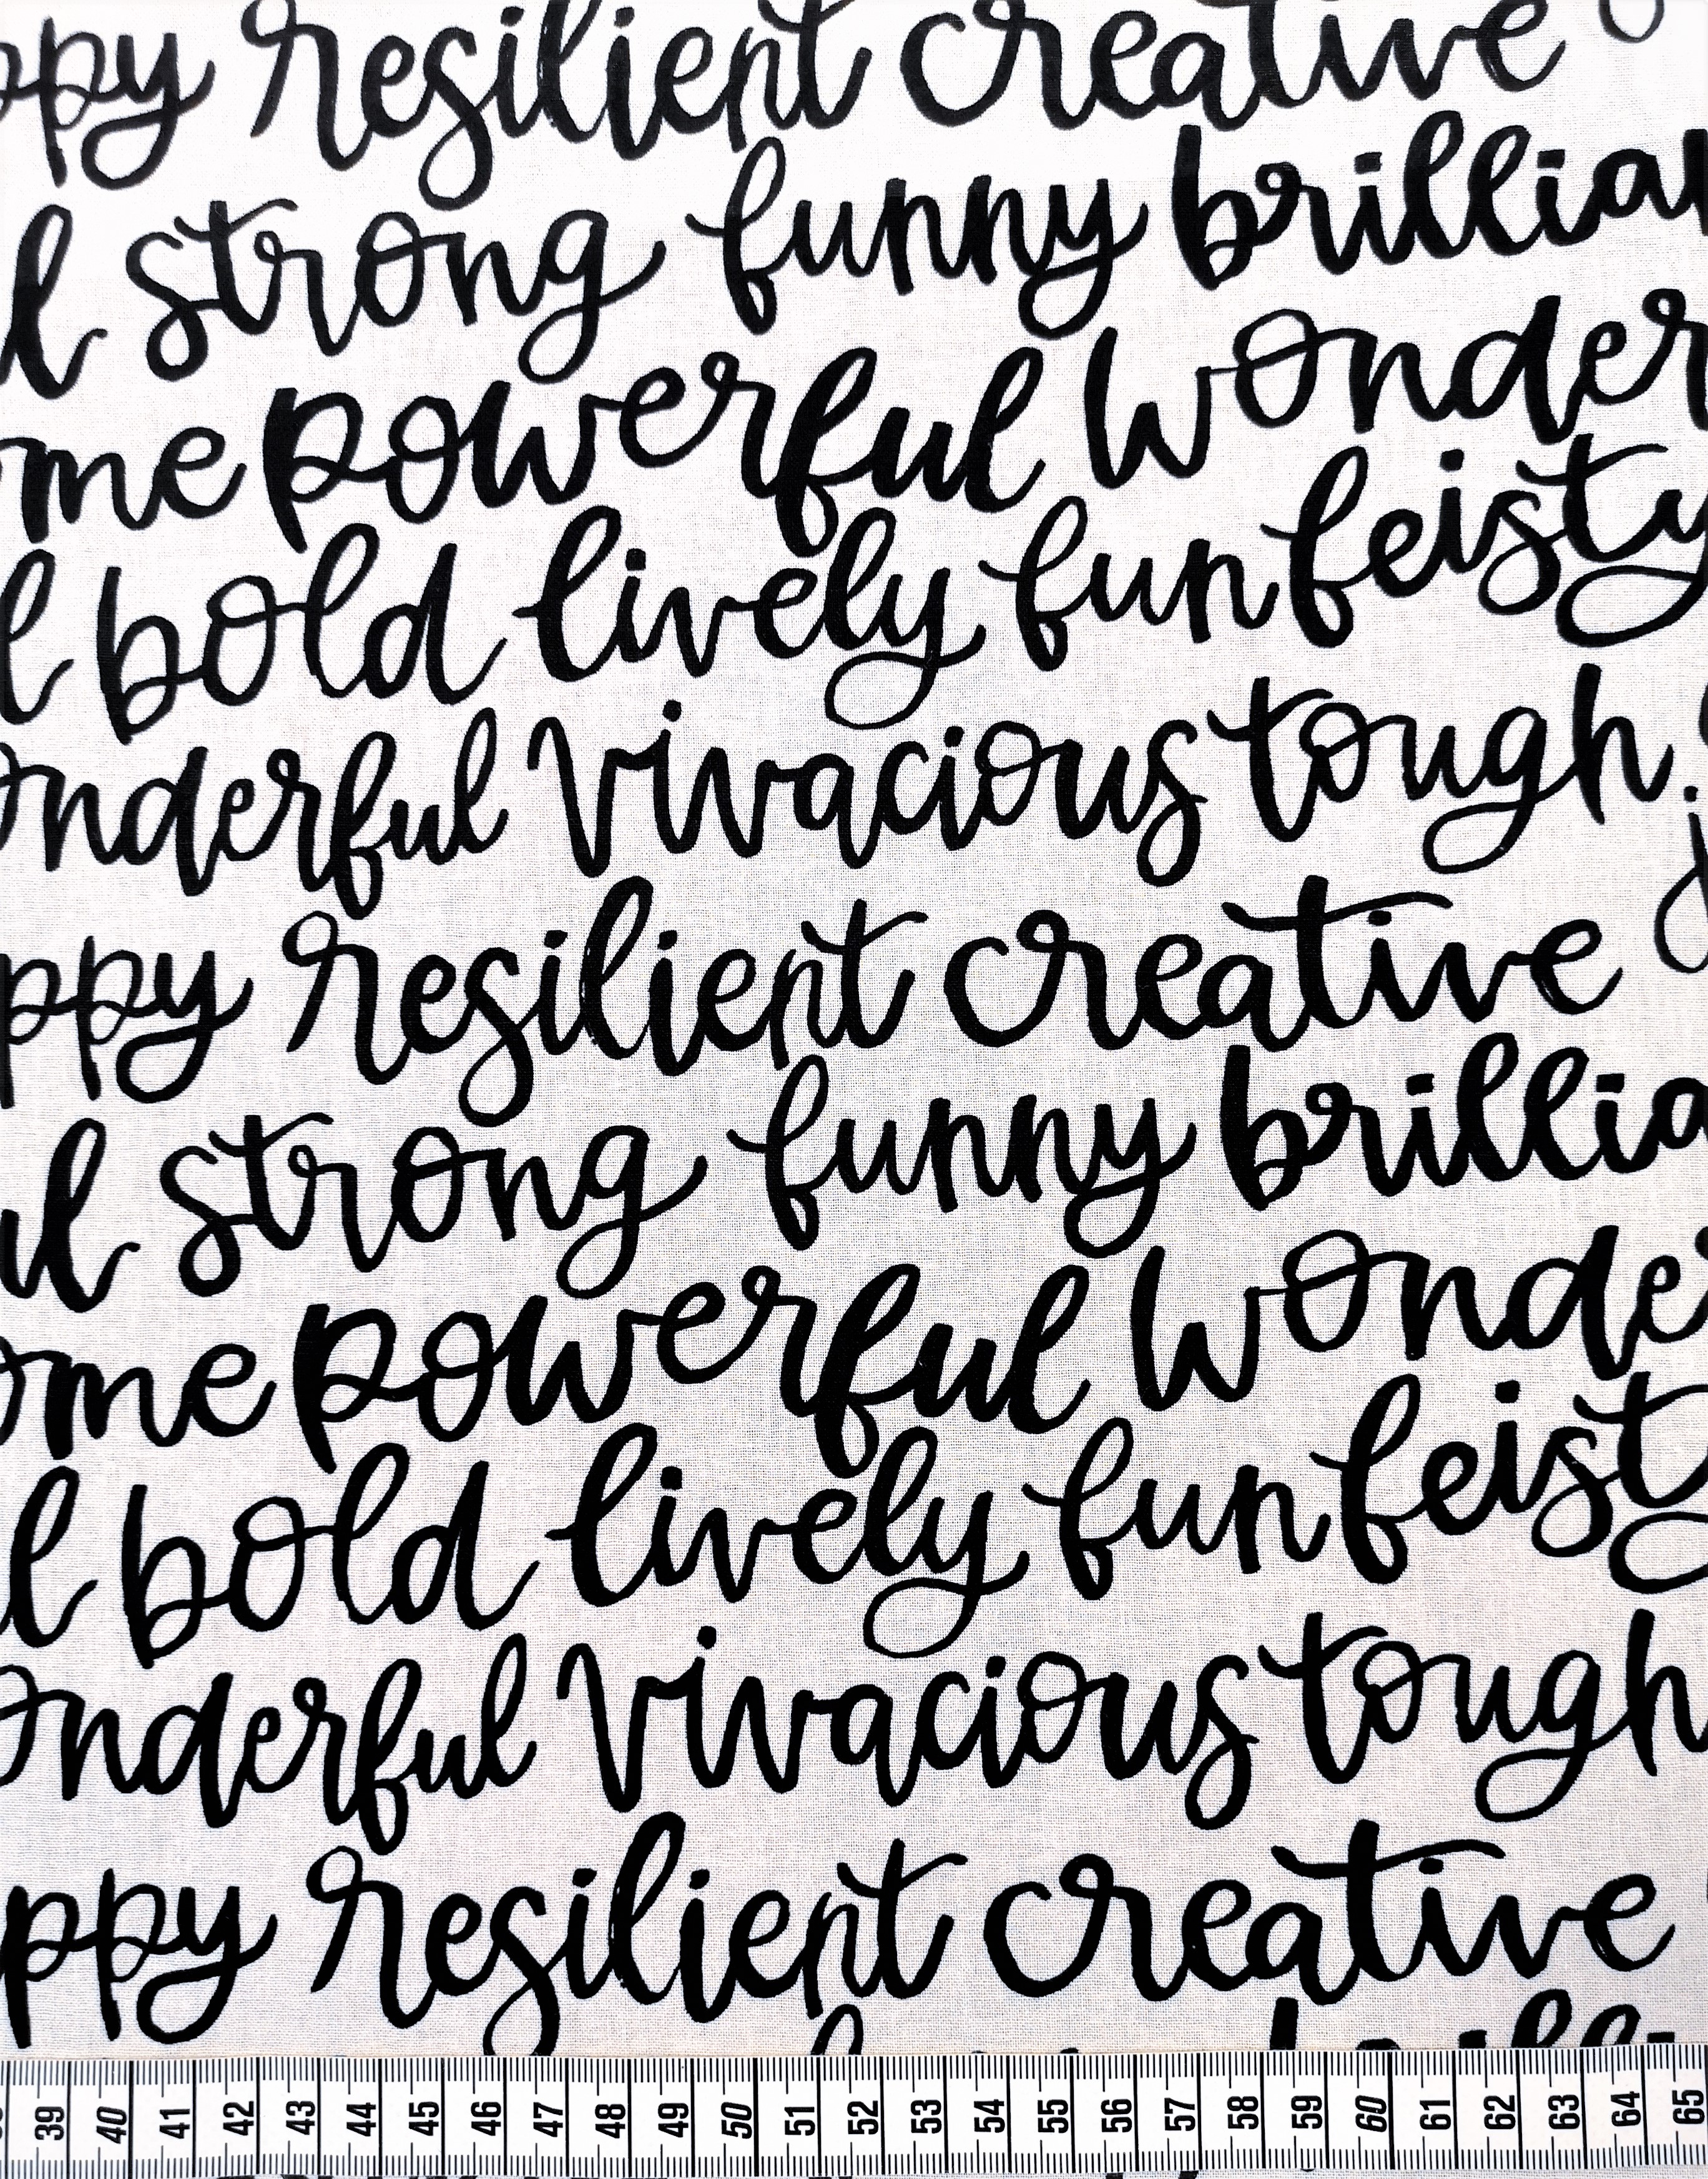 ppy resilient creative
l strong funny brillian
ome powerful wonder
l bold lively fun feisty
onderful vivacious tough
ppy resilient creative
ul strong funny brillia
ome powerful wonde
l bold lively fun feisty
onderful vivacious tough
ppy resilient creative
39 40 41 42 43 44 45 46 47 48 49 50 51 52 53 54 55 56 57 58 59 60 61 62 63 64 65